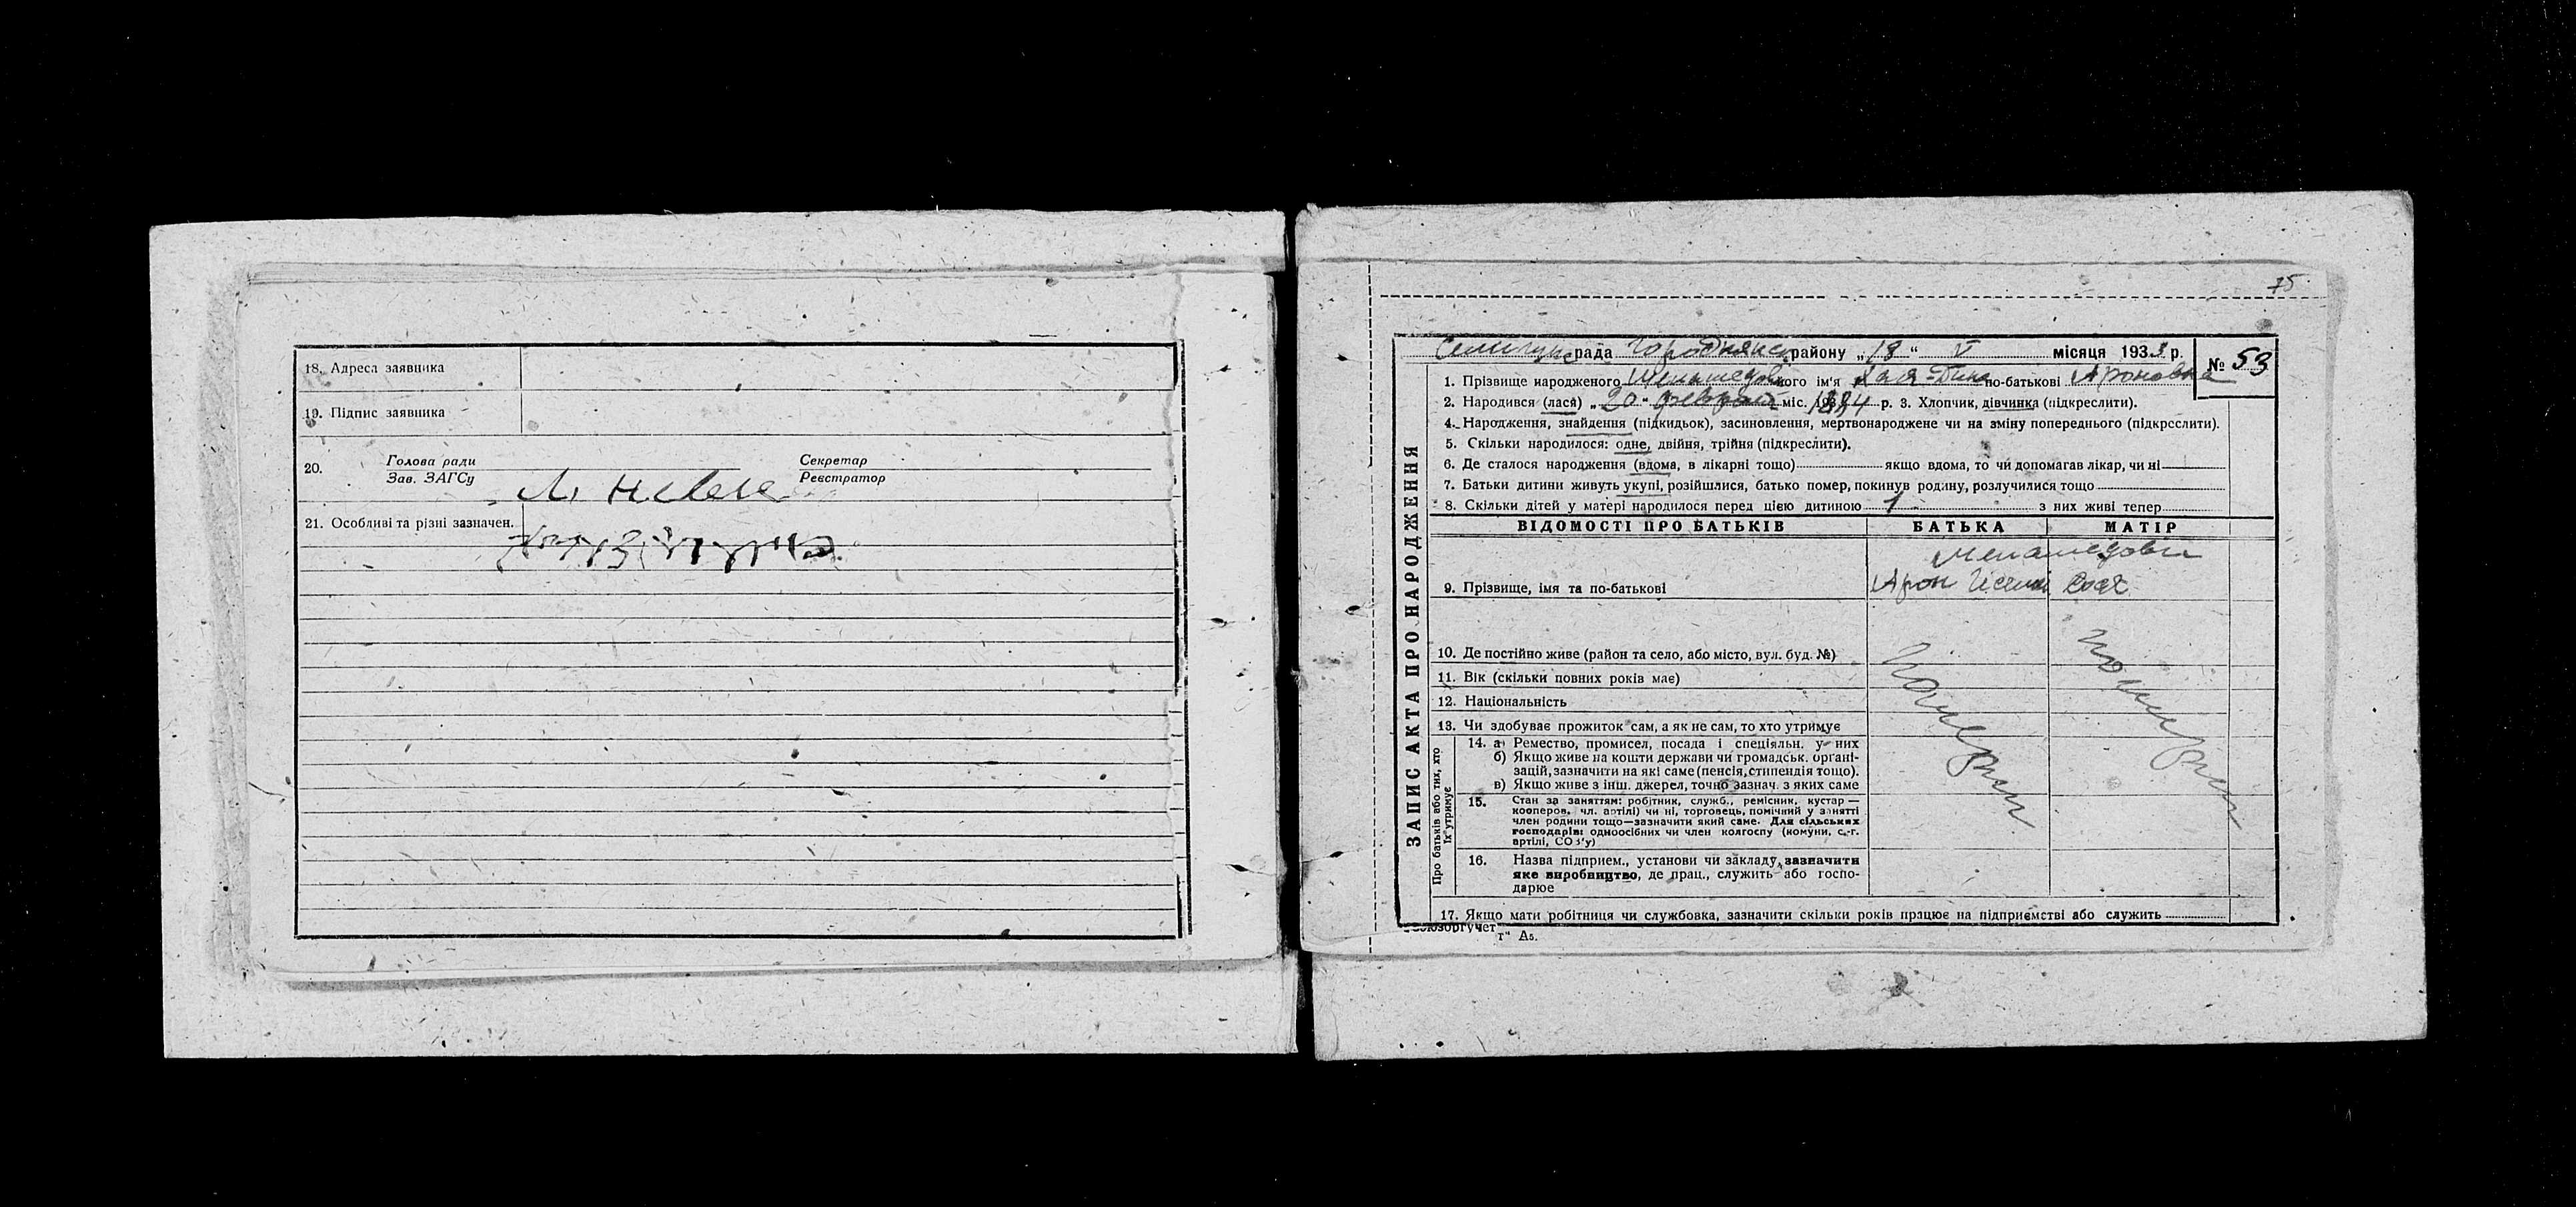 18. Адреса заявника
19. Підпис заявника
20. Голова ради
Зав. ЗАГСу
Секретар
Реєстратор
21. Особливі та різні зазначен.
75
рада района „18“ V місяця 1933 р.
№ 53
1. Прізвище народженого його ім'я Хая-Дина по-батькові Ароновна
2. Народився (лася) „20“ міс. 1884 р. 3. Хлопчик, дівчинка (підкреслити).
4. Народження, знайдення (підкидьок), засиновлення, мертвонароджене чи на зміну попереднього (підкреслити).
5. Скільки народилося: одне, двійня, трійня (підкреслити).
6. Де сталося народження (вдома, в лікарні тощо) якщо вдома, то чи допомагав лікар, чи ні
7. Батьки дитини живуть укупі, розійшлися, батько помер, покинув родину, розлучилися тощо
8. Скільки дітей у матері народилося перед цією дитиною 1 з них живі тепер
ЗАПИС АКТА ПРО НАРОДЖЕННЯ
ВІДОМОСТІ ПРО БАТЬКІВ БАТЬКА МАТІР
9. Прізвище, імя та по-батькові Арон
10. Де постійно живе (район та село, або місто, вул. буд. №)
11. Вік (скільки повних років має)
12. Національність
13. Чи здобуває прожиток сам, а як не сам, то хто утримує
Про батьків або тих, хто
їх утримує
14. а) Ремество, промисел, посада і спеціяльн. у них
б) Якщо живе на кошти держави чи громадськ. органі-
зацій, зазначити на які саме (пенсія, стипендія тощо).
в) Якщо живе з інш. джерел, точно зазнач. з яких саме
15. Стан за заняттям: робітник, служб., ремісник, кустар —
кооперов. чл. артілі) чи ні, торговець, помічний у занятті
член родини тощо—зазначити який саме. Для сільських
господарів: одноосібних чи член колгоспу (комуни, с.-г.
артілі, СОЗ'у)
16. Назва підприєм., установи чи закладу, зазначити
яке виробництво, де прац., служить або госпо-
дарює
17. Якщо мати робітниця чи службовка, зазначити скільки років працює на підприємстві або служить
т“ А5.